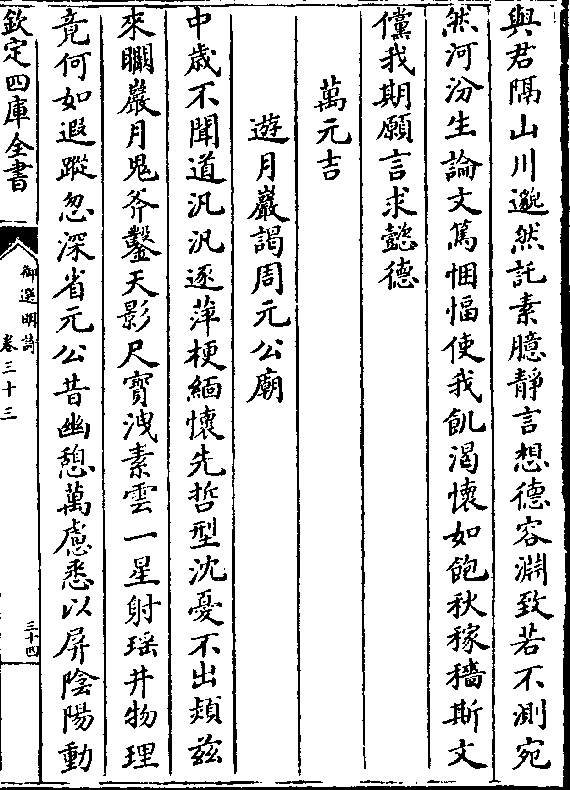 與君隔山川邈然託素臆靜言想德容淵致若不測宛
然河汾生論文篤悃愊使我飢渴懷如飽秋稼穡斯文
儻我期願言求懿德
萬元吉
遊月巖謁周元公廟
中歲不聞道汎汎逐萍梗緬懷先哲型沈憂不出熲兹
來瞯巖月鬼斧鑿天影尺寶洩素雲一星射瑶井物理
竟何如遐蹤忽深省元公昔幽憩萬慮悉以屏陰陽動
欽定四庫全書
御選明詩
卷三十三
三十四